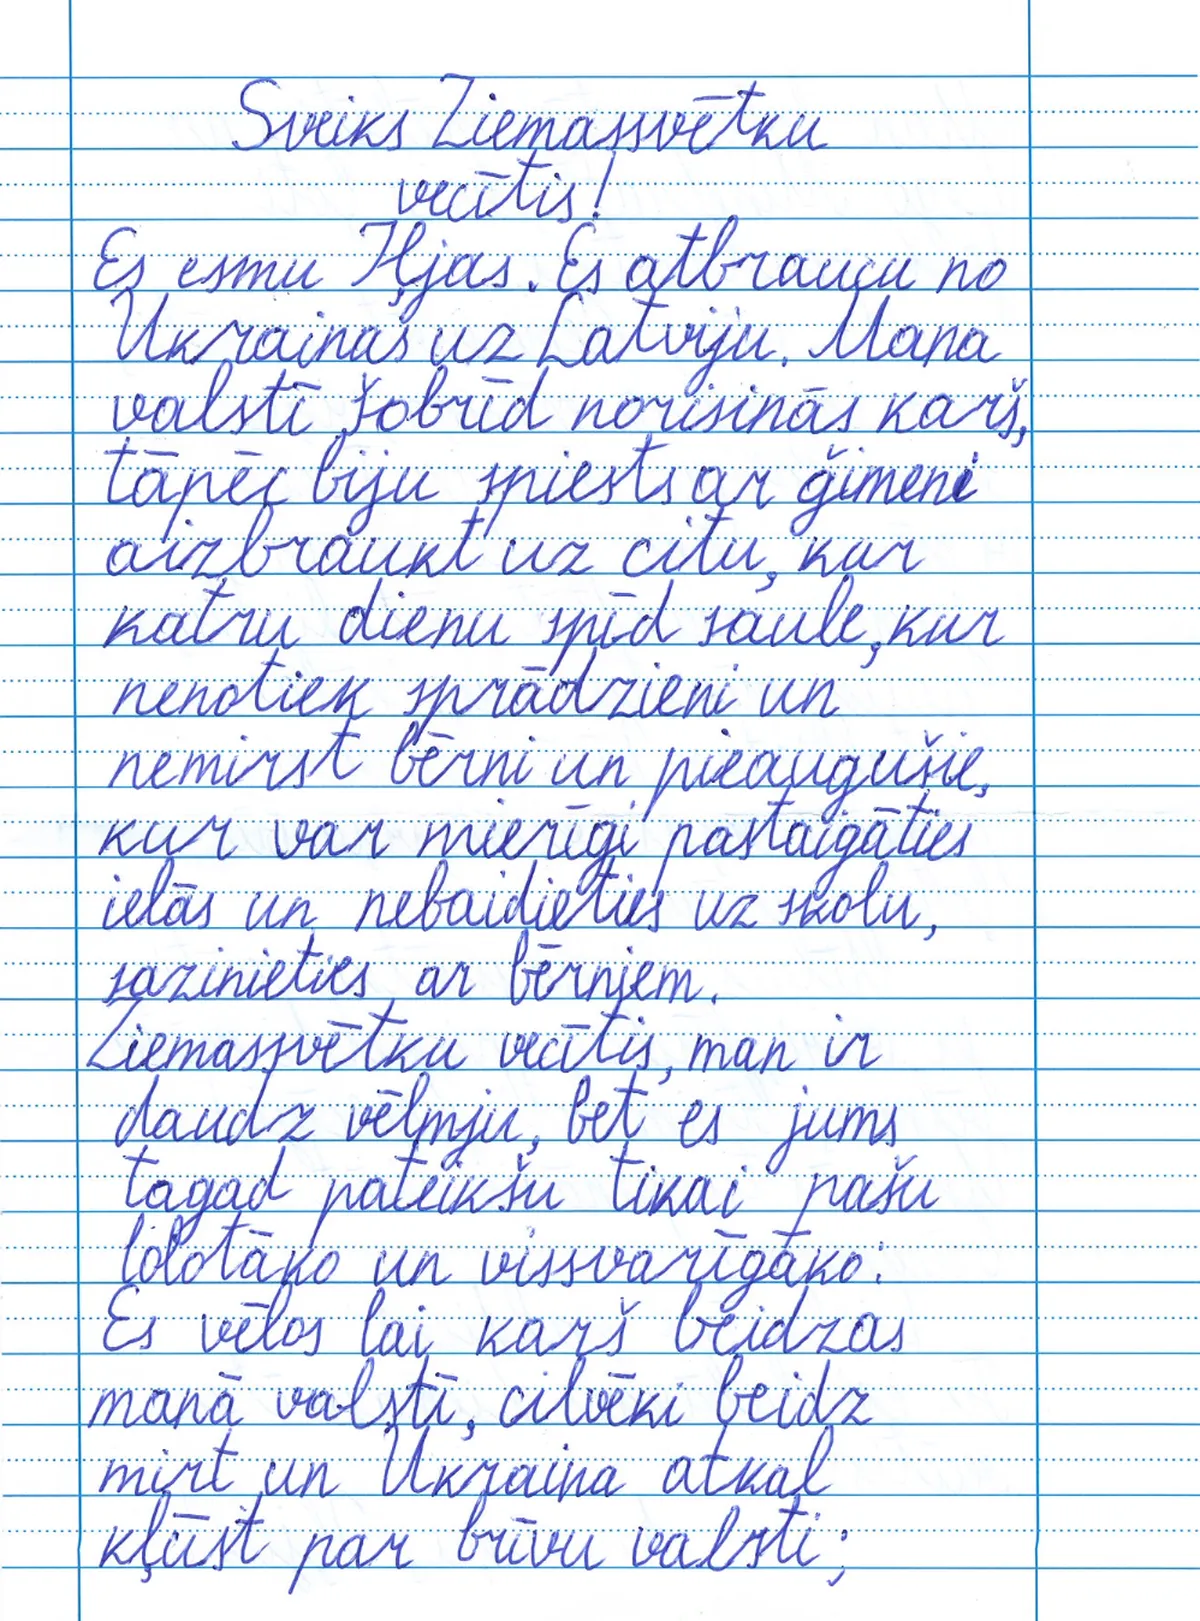 Sveiks Ziemassvētku
vecītis!
Es esmu Iļjas. Es atbraucu no
Ukrainas uz Latviju. Mana
valstī šobrīd norisinās karš,
tāpēc biju spiests ar ģimeni
aizbraukt uz citu, kur
katru dienu spīd saule, kur
nenotiek sprādzieni un
nemirst bērni un pieaugušie,
kur var mierīgi pastaigāties
ielās un nebaidieties uz skolu,
sazinieties ar bērniem.
Ziemassvētku vecītis, man ir
daudz vēlmju, bet es jums
tagad pateikšu tikai pašu
lolotāko un vissvarīgāko:
Es vēlos lai karš beidzas
manā valstī, cilvēki beidz
mirt un Ukraina atkal
kļūst par brīvu valsti;